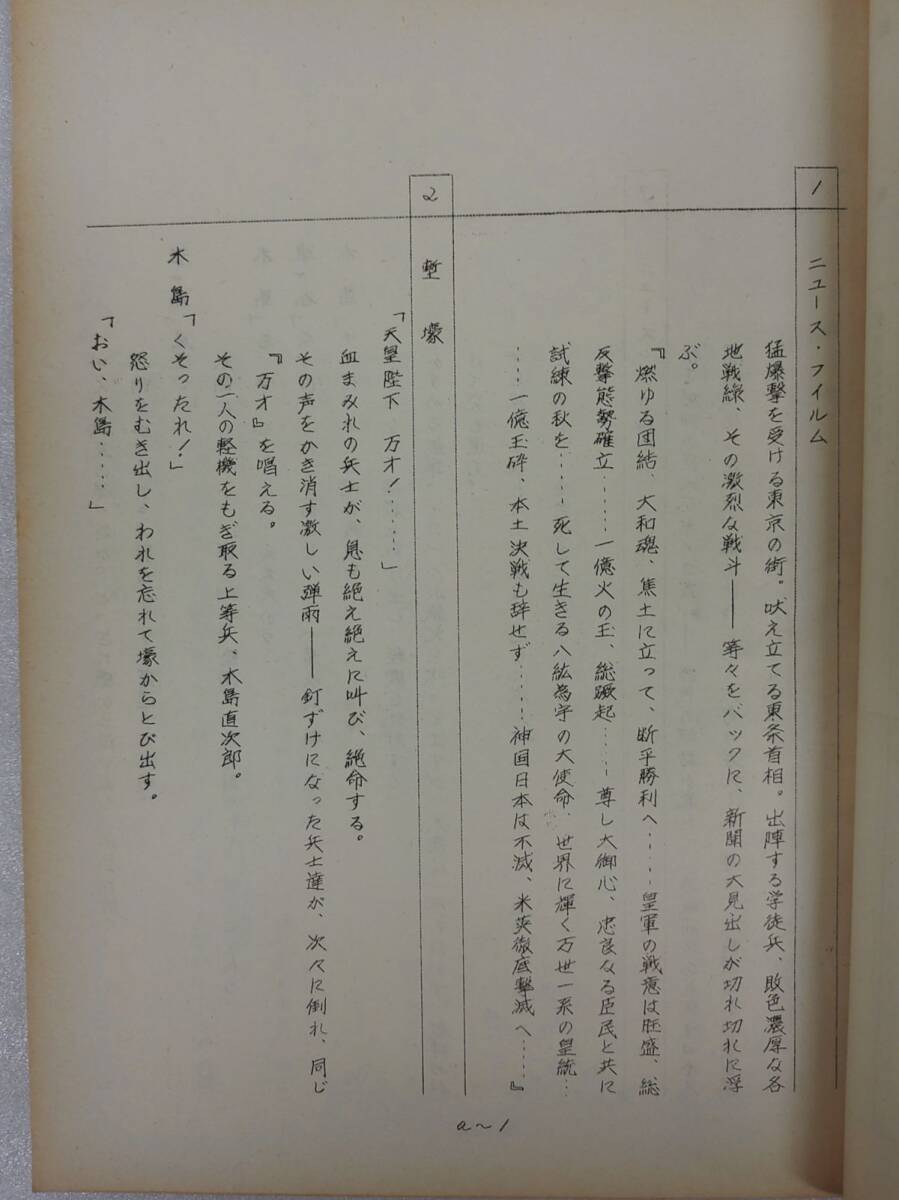 1 ニュース・フイルム
猛爆撃を受ける東京の街。吠え立てる東条首相。出陣する学徒兵、敗色濃厚な各
地戦線、その激烈な戦斗――等々をバックに、新聞の大見出しが切れ切れに浮
ぶ。
『燃ゆる団結、大和魂、焦土に立って、断乎勝利へ……皇軍の戦意は旺盛、総
反撃態勢確立……一億火の玉、総蹶起……尊し大御心、忠良なる臣民と共に
試練の秋を……死して生きる八紘為宇の大使命、世界に輝く万世一系の皇統…
……一億玉砕、本土決戦も辞せず……神国日本は不滅、米英徹底撃滅へ……』
2 塹壕
「天皇陛下 万才!……」
血まみれの兵士が、息も絶え絶えに叫び、絶命する。
その声をかき消す激しい弾雨――釘ずけになった兵士達が、次々に倒れ、同じ
『万才』を唱える。
その一人の軽機をもぎ取る上等兵、木島直次郎。
木島「くそったれ!」
怒りをむき出し、われを忘れて壕からとび出す。
「おい、木島……」
a~1